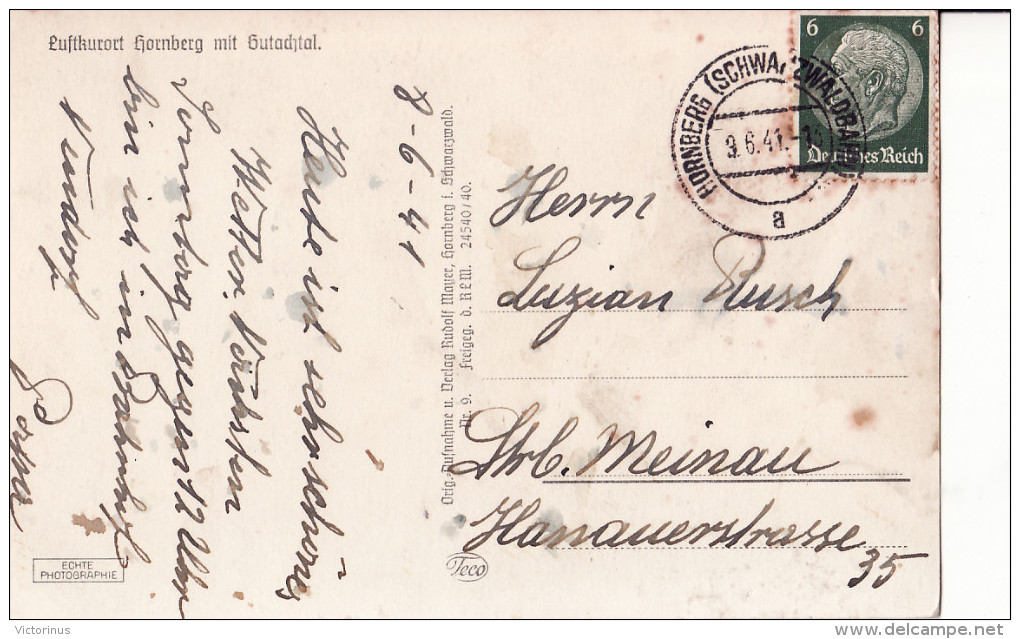 Luftkurort Hornberg mit Gutachtal.
8-6-41
Heute ist sehr schönes
Wetter.
Sonntag gegen 12 Uhr
bin ich in
Orig.-Aufnahme u. Verlag Rudolf Mayer, Hornberg i. Schwarzwald.
Nr. 9. Freigeg. d. RLM. 24540/40.
HORNBERG (SCHWARZWALDBAHN)
9.6.41.
a
6 6
Deutsches Reich
Herrn
Luzian Rusch
Strb. Meinau
Hanauerstrasse
35
ECHTE
PHOTOGRAPHIE
Teco
Victorinus
delcampe.net